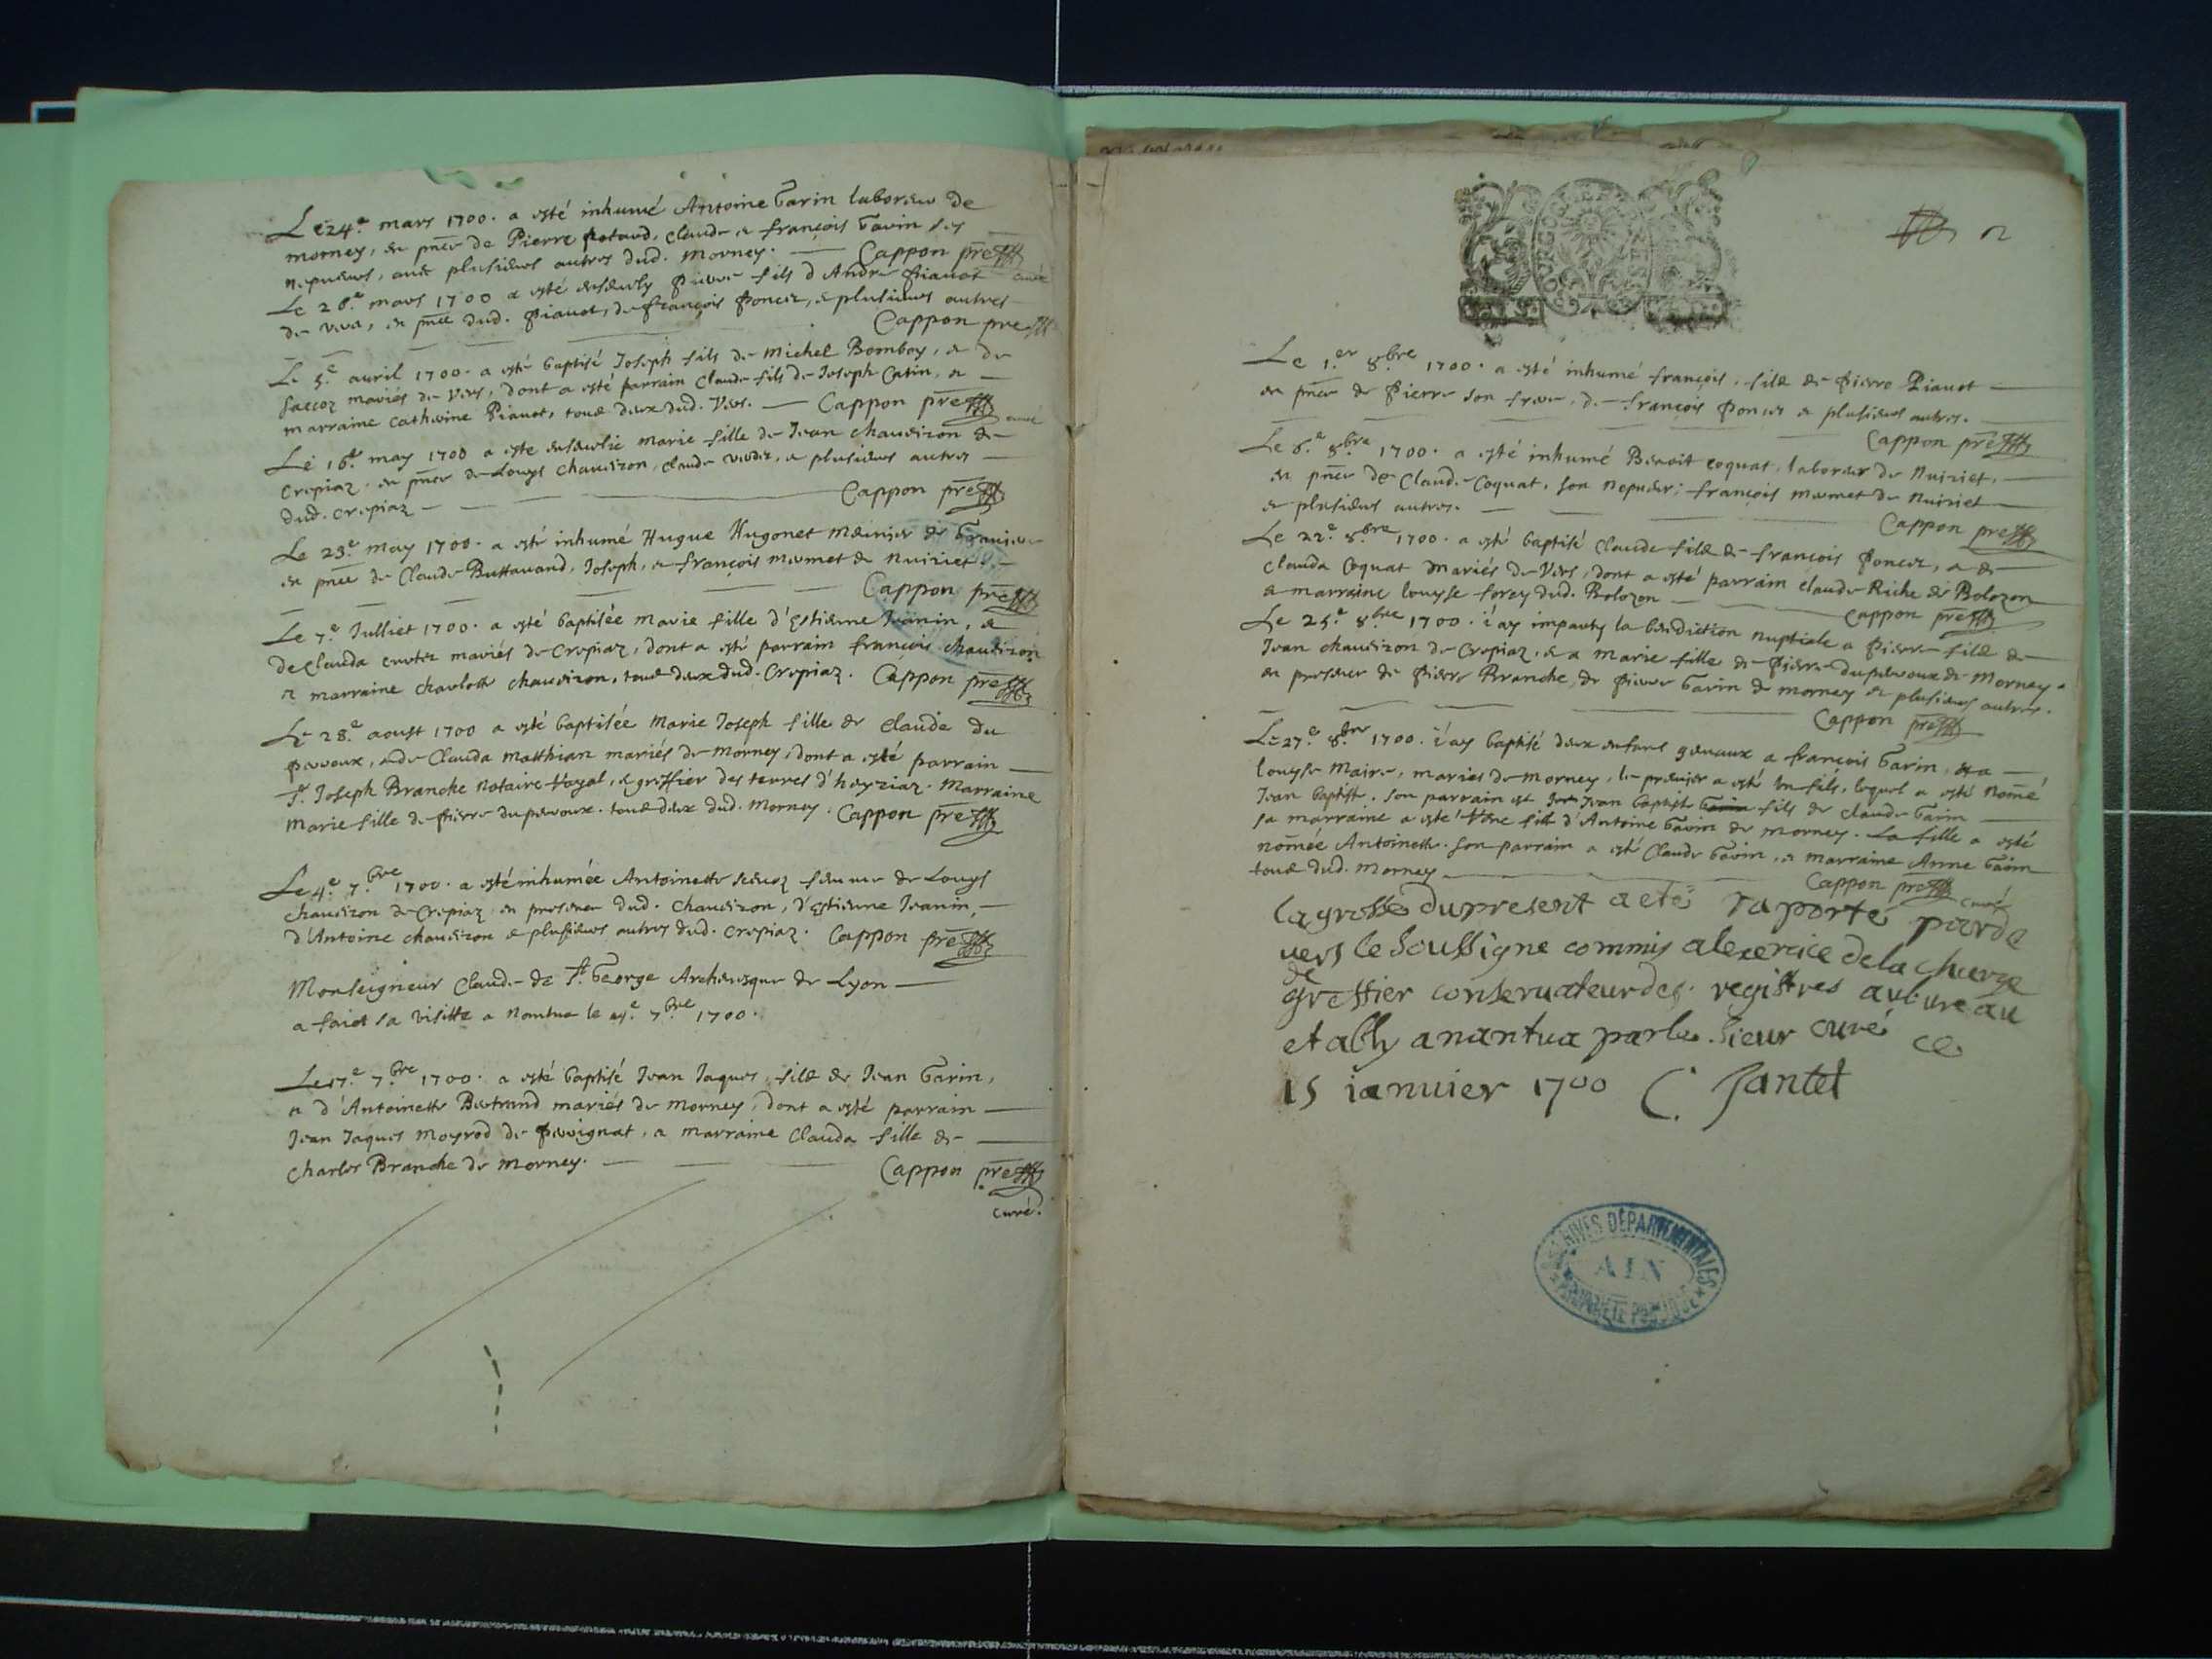 Le 24.e mars 1700. a esté inhumé Antoine Garin laboreur de
morney, en pñce de Pierre potard, claude et françois Garin ses
nepueus, auec plusieurs autres dud. morney. Cappon pre
curé
Le 26.e mars 1700 a esté enseuely pierre fils d'Andre piauot
de vers, en pñce dud. piauot, de françois poncet, et plusieurs autres
Cappon pre
Le 5.e auril 1700. a esté baptisé Joseph fils de michel Bomboy, et de
mariés de Vers, dont a esté parrain Claude fils de Joseph Catin, et
marraine catherine Piauot, tous deux dud. Vers. Cappon pre
curé
Le 16.e may 1700 a este enseuelie marie fille de Jean chaudizon de
Crepiaz, en pñce de Louys chaudizon, claude, et plusieurs autres
dud. Crepiaz Cappon pre
Le 23.e may 1700. a esté inhumé Hugue Hugonet meunier de
en pñce de Claude Buttauand, Joseph, et françois mermet de nuiriet
Cappon pre
Le 7.e Julliet 1700. a esté baptisée marie fille d'Estienne Jeanin, et
de clauda mariés de Crepiaz, dont a esté parrain françois chaudizon
et marraine charlotte chaudizon, tous deux dud. Crepiaz. Cappon pre
Le 28.e aoust 1700 a esté baptisée Marie Joseph fille de Claude du
perroux, et de Clauda matthian mariés de morney, dont a esté parrain
Sr. Joseph Branche notaire Royal, et greffier des terres d'heyriaz. Marraine
Marie fille de pierre duperroux. tous deux dud. Morney. Cappon pre
Le 4.e 7.bre 1700. a esté inhumée Antoinette femme de Louys
chaudizon de Crepiaz, en presence dud. chaudizon, d'Estienne Jeanin,
d'Antoine chaudizon et plusieurs autres dud. crepiaz. Cappon pre
Monseigneur Claude de St. George Archeuesque de Lyon
a faict sa visitte a Nantua le 7.bre 1700.
Le 17.e 7.bre 1700. a esté baptisé Jean Jaques, fils de Jean Garin,
et d'Antoinette Bertrand mariés de morney, dont a esté parrain
Jean Jaques moyrod de peroignat, et marraine Clauda fille de
charles Branche de morney. Cappon pre
curé.
2
Le 1.er 8.bre 1700. a esté inhumé françois, fils de pierre Piauot
en pñce de Pierre son frere, de françois poncet et plusieurs autres.
Cappon pre
Le 6.e 8.bre 1700. a esté inhumé Benoit coquat, laboreur de Nuiriet,
en pñce de Claude Coquat, son nepueu; françois mermet de nuiriet
et plusieurs autres.
Cappon pre
Le 22.e 8.bre 1700. a esté baptisé claude fils de françois poncet, et de
clauda Coquat mariés de Vers, dont a esté parrain claude Riche de Bolozon
et marraine louyse forey dud. Bolozon Cappon pre
Le 25.e 8.bre 1700. i'ay imparty la benediction nuptiale a pierre fils de
Jean chaudizon de Crepiaz, et a marie fille de pierre duperroux de Morney.
en presence de pierre Branche, de pierre Garin de morney et plusieurs autres.
Cappon pre
Le 27.e 8.bre 1700. i'ay baptisé deux enfans gemeaux a françois Garin, et a
louyse Maire, mariés de morney, le premier a esté un fils, lequel a esté nommé
Jean baptiste. son parrain est Jean baptiste Garin fils de claude Garin
sa marraine a esté fille d'Antoine Garin de morney. La fille a esté
nommée Antoinette. son parrain a esté Claude Garin, et marraine Anne Garin
tous dud. Morney Cappon pre
curé
la grosse du present a eté raporté pard
vers le soussigne commis alexercice dela charge
de
greffier conseruateur des registres au bureau
etably anantua parle sieur curé ce
15 ianuier 1700 C. Jantet
ARCHIVES DÉPARTEMENTALES
AIN
PROPRIÉTÉ PUBLIQUE